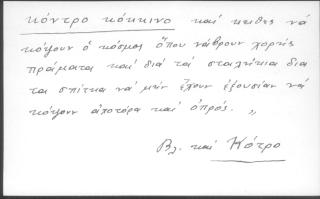 κόντρο κόκκινο καί κεῖθες νά
κόψουν ὁ κόσμος ὅπου νάβρουν χωρίς
πράματα καί διά τά σταλίκια δια
τα σπίτια νά μήν ἔχουν ἐξουσίαν νά
κόψουν ἀπoτόρα καί ὀμπρός. „
Βλ. καί Κότρο